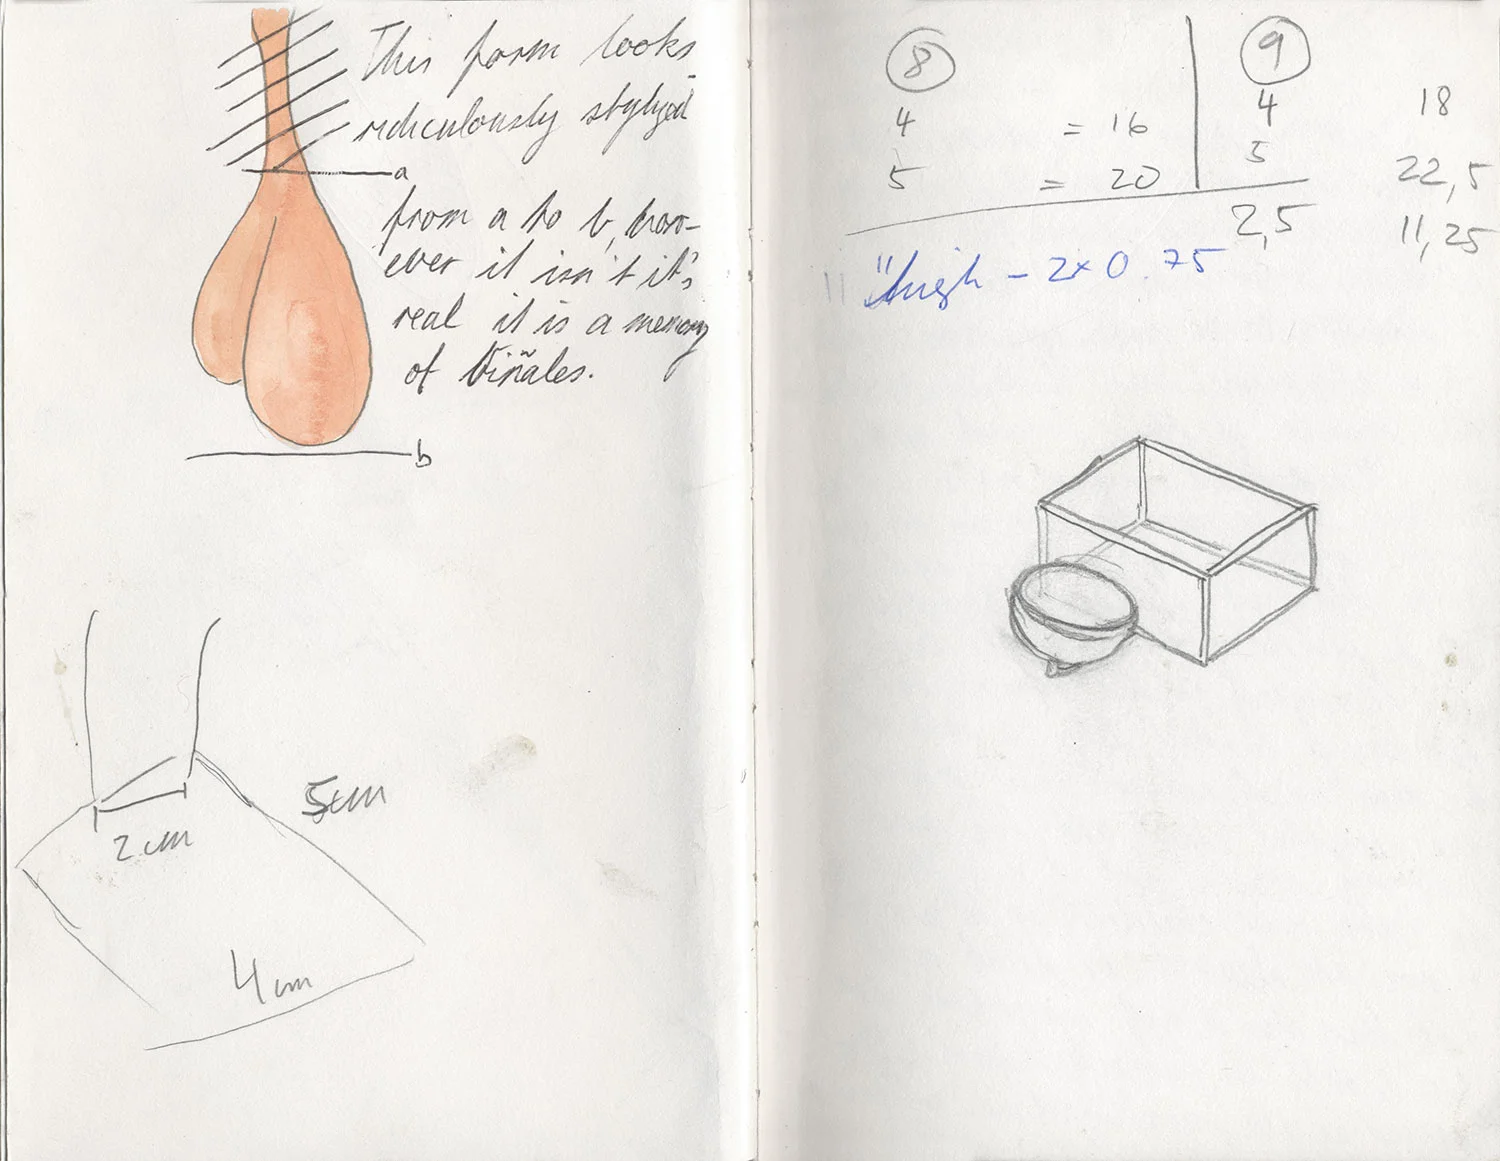 This form looks
ridiculously stylyzed
a
from a to b, how-
ever it isn't it's
real it is a memory
of Viñales.
b
5cm
2cm
4cm
8 9
4 = 16 4 18
5 = 20 5 22,5
2,5 11,25
"high – 2x0.75